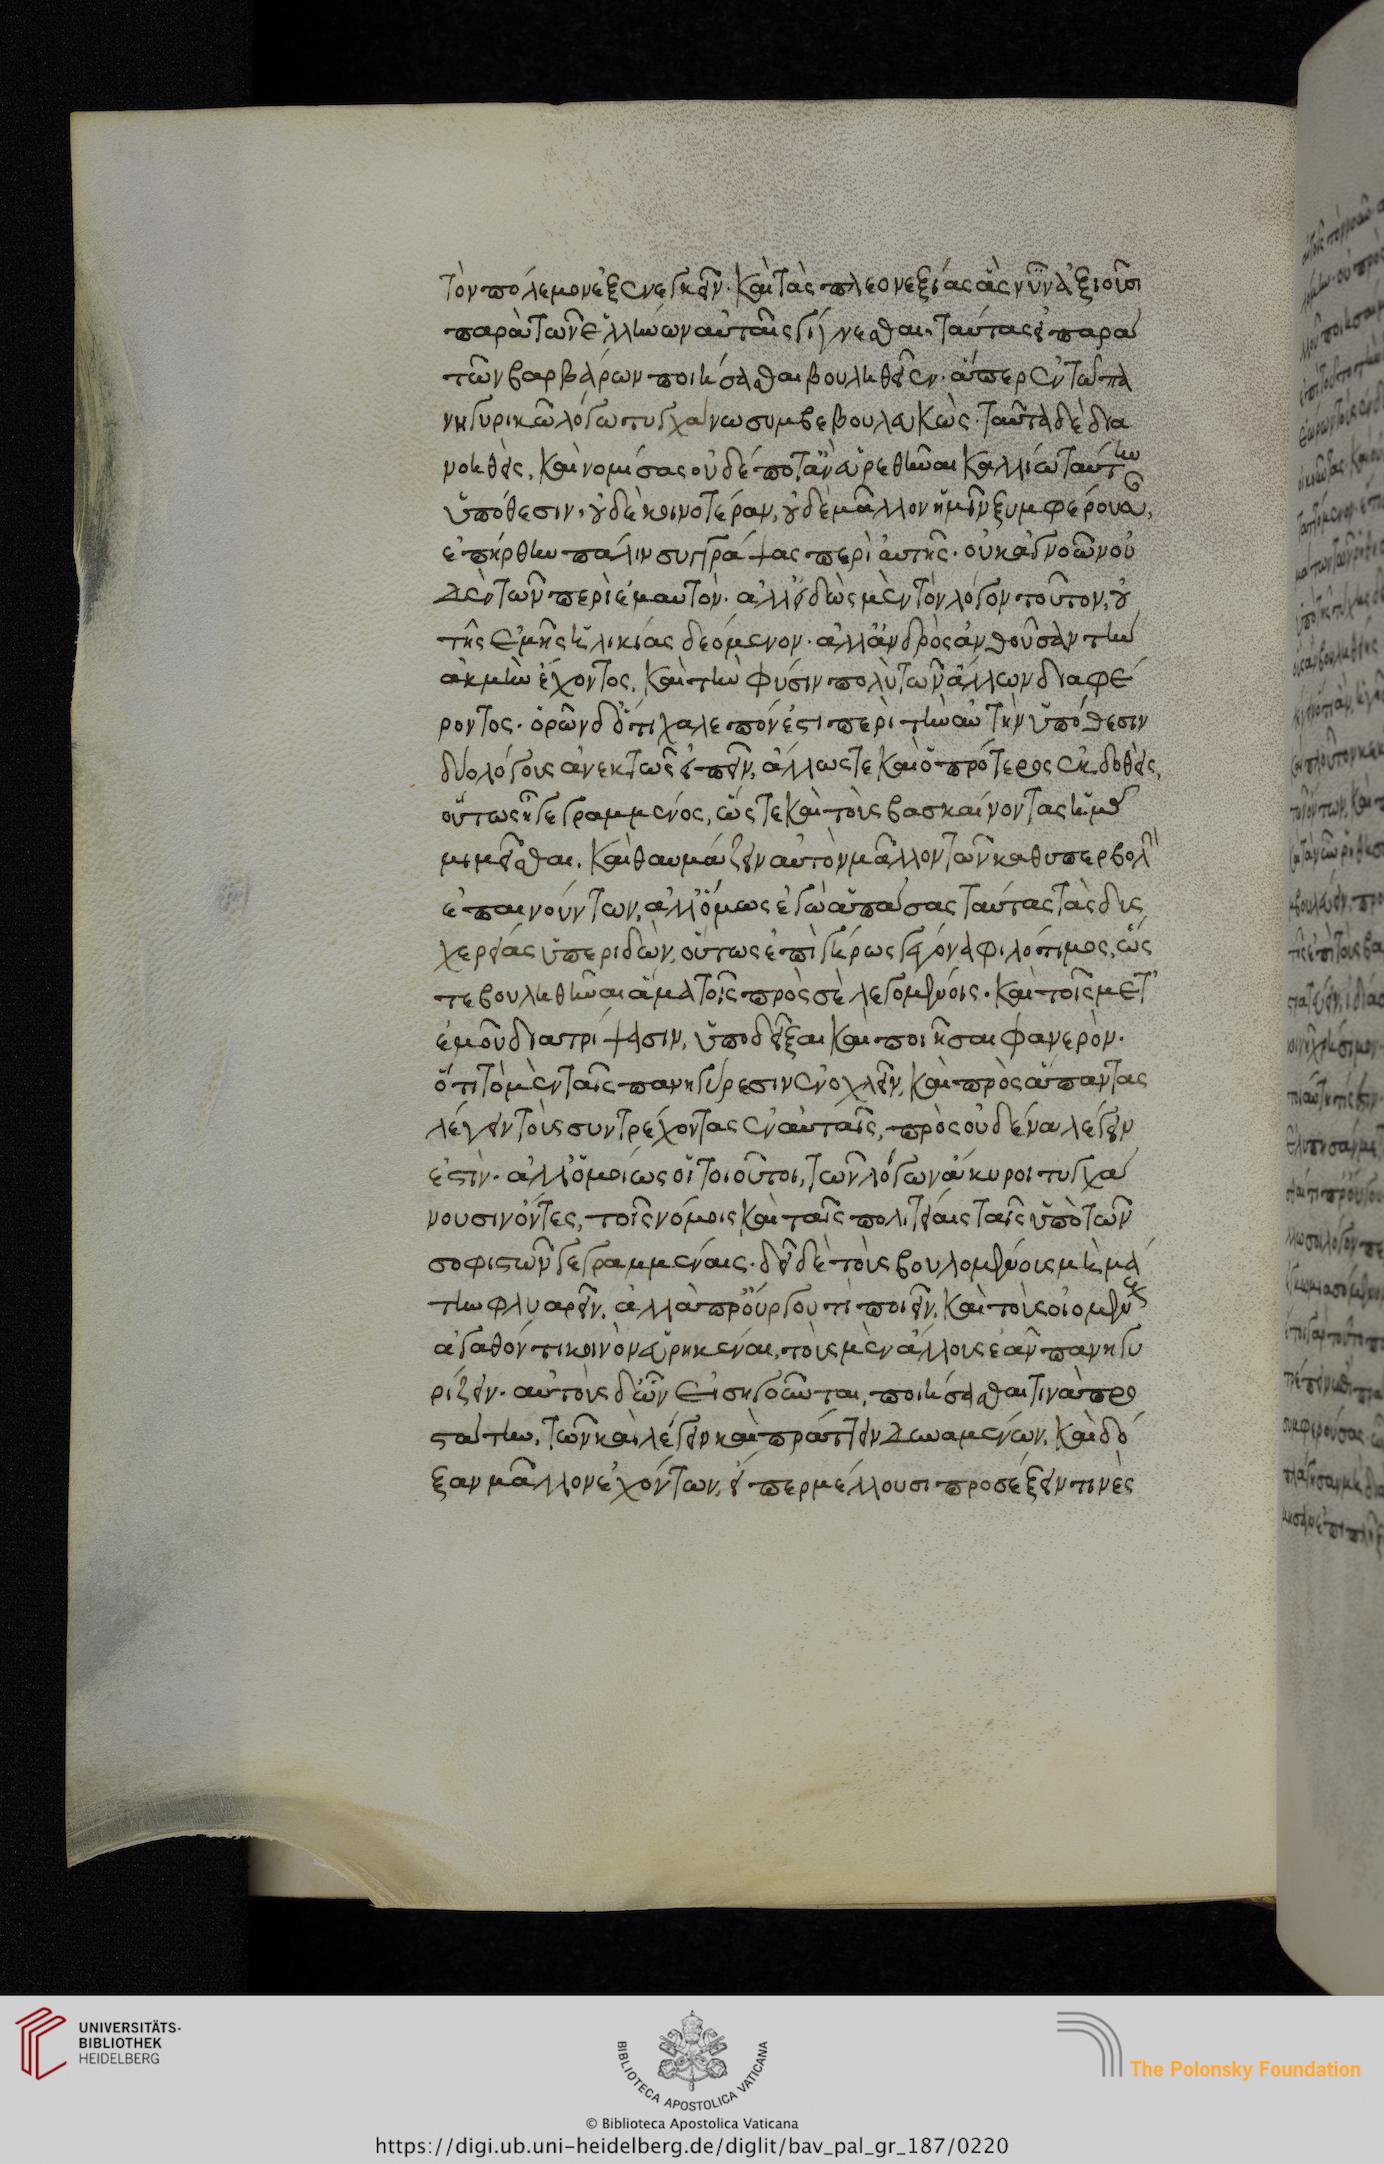 τὸν πόλεμον ἐξενεγκεῖν· καὶ τὰς πλεονεξίας ἃς νῦν ἀξιοῦσι
παρὰ τῶν ἑλλήνων αὐταῖς γίγνεσθαι, ταύτας εἰ παρὰ
τῶν βαρβάρων ποιήσασθαι βουληθεῖεν· ἅπερ ἐν τῶ πα
νηγυρικῶ λόγω τυγχάνω συμβεβουλευκώς· ταῦτα δὲ δια
νοηθεὶς, καὶ νομίσας οὐδέποτ' ἂν εὑρεθῆναι καλλίω ταύτην
ὑπόθεσιν, οὐδὲ κοινοτέραν, οὐδὲ μᾶλλον ἡμῖν ξυμφέρουσαν,
ἐπήρθην πάλιν συγγράψας περὶ αὐτῆς· οὐκ ἀγνοῶν οὐ
δὲν τῶν περὶ ἐμαυτὸν· ἀλλ' εἰδὼς μὲν τὸν λόγον τοῦτον, οὐ
τῆς ἐμῆς ἡλικίας δεόμενον· ἀλλ' ἀνδρὸς ἀνθοῦσαν τὴν
ἀκμὴν ἔχοντος, καὶ τὴν φύσιν πολὺ τῶν ἄλλων διαφέ
ροντος· ὁρῶν δ' ὅτι χαλεπόν ἐστι περὶ τὴν αὐτὴν ὑπόθεσιν
δύο λόγους ἀνεκτῶς εἰπεῖν, ἄλλως τε καὶ ὁ πρότερος ἐκδοθεὶς,
οὕτως ἦ γεγραμμένος, ὥστε καὶ τοὺς βασκαίνοντας ἡμᾶς
μιμεῖσθαι, καὶ θαυμάζειν αὐτὸν μᾶλλον τῶν καθ' ὑπερβολὴν
ἐπαινούντων, ἀλλ' ὅμως ἐγὼ ἁπάσας ταύτας τὰς δυς
χερείας ὑπεριδὼν, οὕτως ἐπὶ γήρως γέγονα φιλότιμος, ὥς
τε βουληθῆναι ἅμα τοῖς πρὸς σὲ λεγομένοις· καὶ τοῖς μετ'
ἐμοῦ διατρίψασιν, ὑποδεῖξαι καὶ ποιῆσαι φανερὸν·
ὅτι τὸ μὲν ταῖς πανηγύρεσιν ἐνοχλεῖν, καὶ πρὸς ἅπαντας
λέγειν τοὺς συντρέχοντας ἐν αὐταῖς, πρὸς οὐδένα λέγειν
ἐστὶν· ἀλλ' ὁμοίως οἱ τοιοῦτοι, τῶν λόγων ἄκυροι τυγχά
νουσιν ὄντες, τοῖς νόμοις καὶ ταῖς πολιτείαις ταῖς ὑπὸ τῶν
σοφιστῶν γεγραμμέναις· δεῖ δὲ τοὺς βουλομένους μὴ μά
την φλυαρεῖν, ἀλλὰ προὔργου τὶ ποιεῖν, καὶ τοὺς οἰομένους
ἀγαθόν τι κοινὸν εὑρηκέναι, τοὺς μὲν ἄλλους ἐᾶν πανηγυ
ρίζειν· αὐτοὺς δ' ὧν εἰσηγοῦνται, ποιήσασθαι τινὰ προ
στάτην, τῶν καὶ λέγειν καὶ πράττειν δυναμένων, καὶ δό
ξαν μᾶλλον ἐχόντων, εἴπερ μέλλουσι προσέξειν τινὲς
UNIVERSITÄTS-
BIBLIOTHEK
HEIDELBERG
BIBLIOTECA APOSTOLICA VATICANA
The Polonsky Foundation
© Biblioteca Apostolica Vaticana
https://digi.ub.uni-heidelberg.de/diglit/bav_pal_gr_187/0220